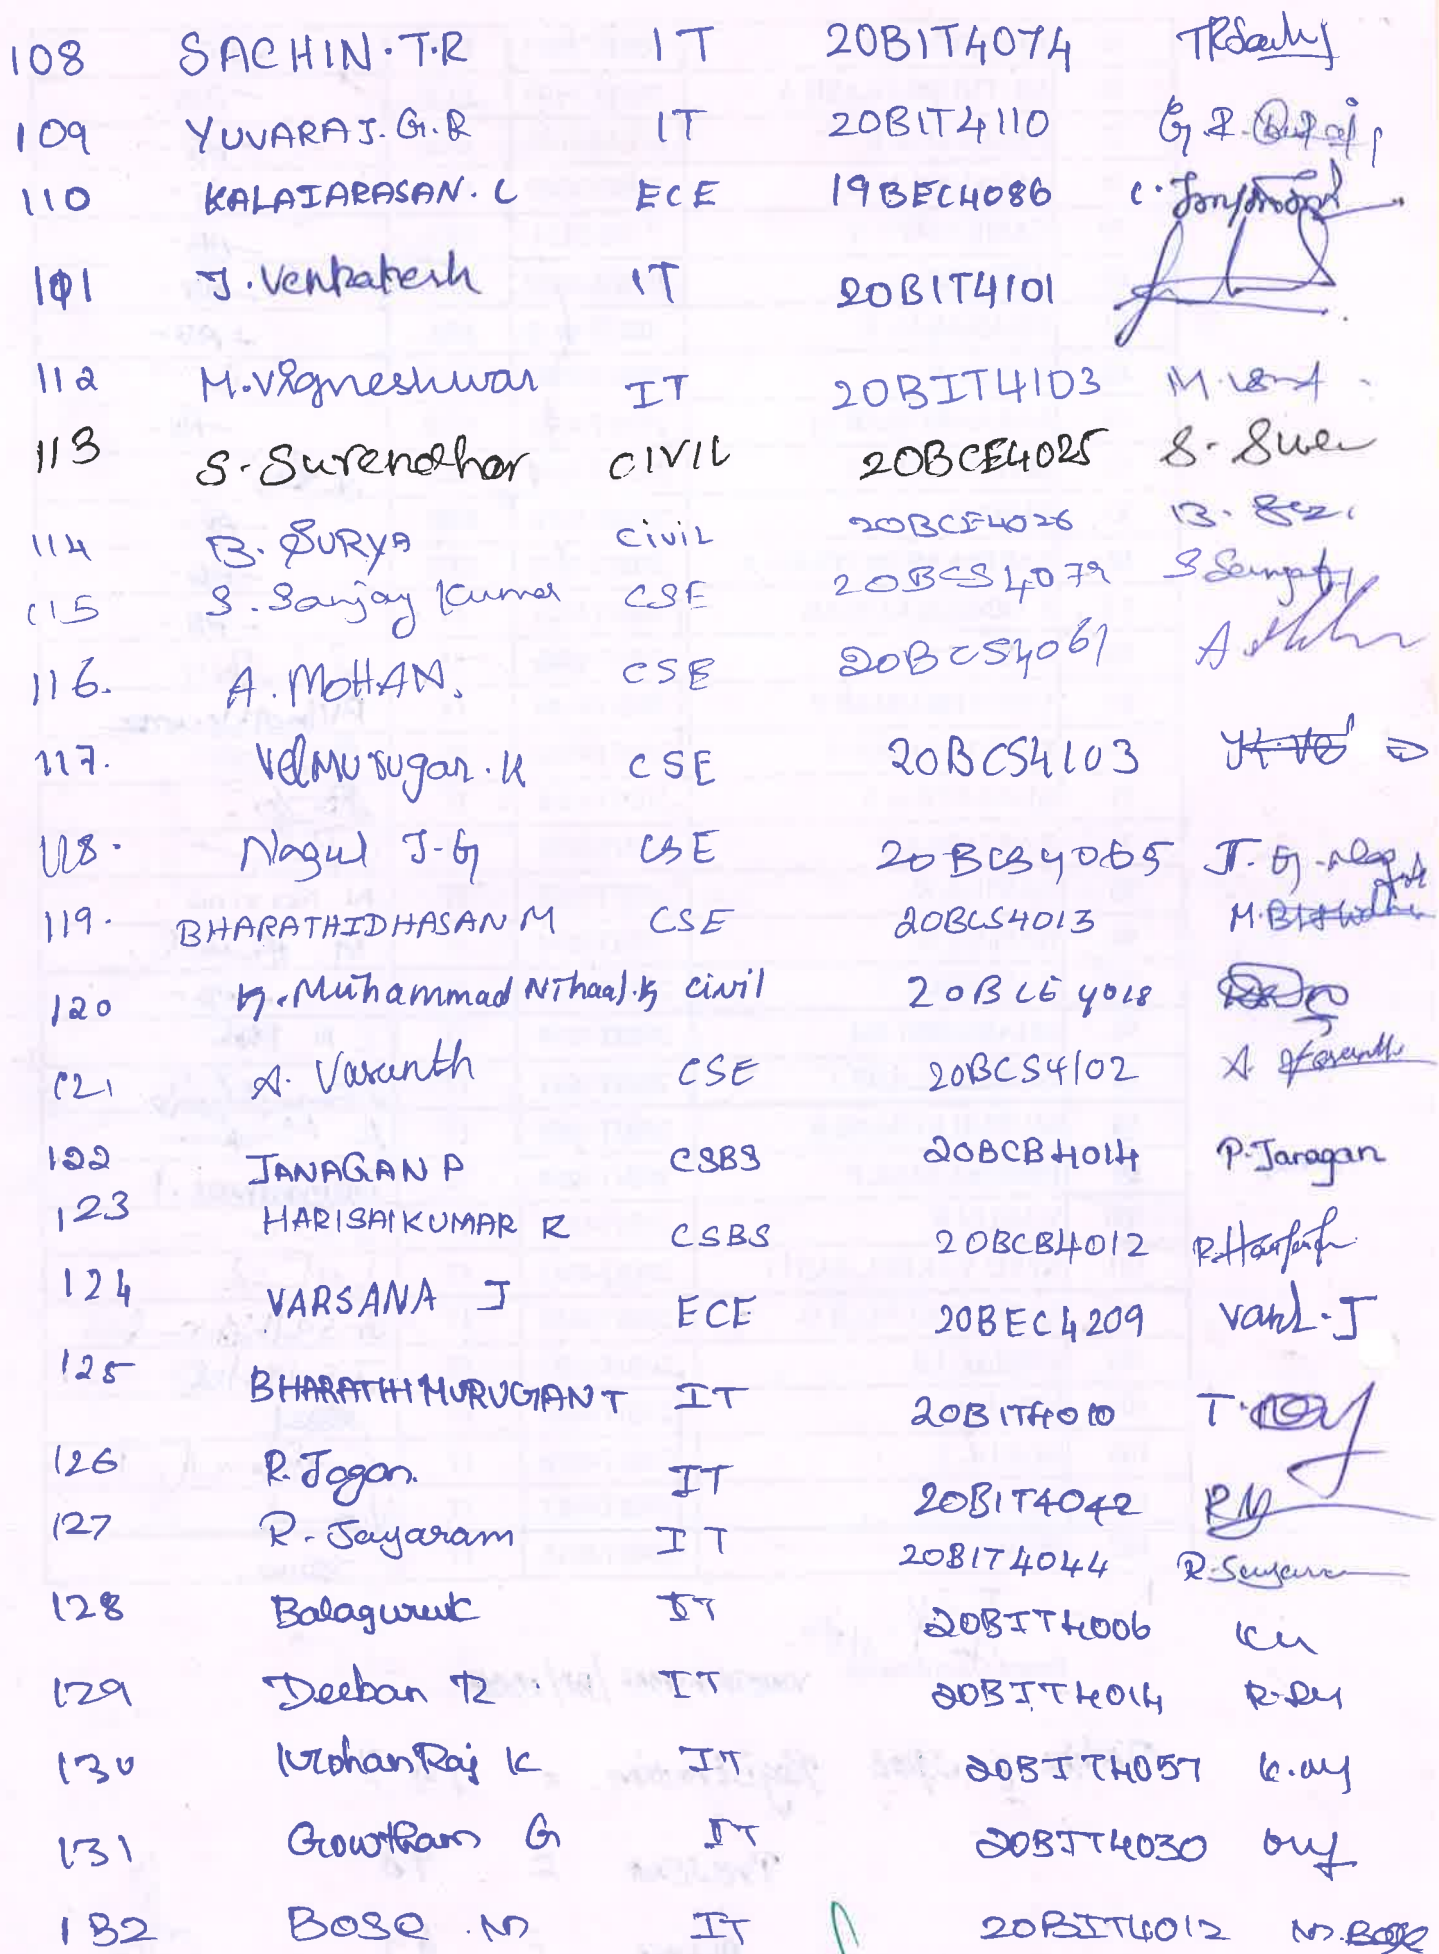 108 SACHIN.T.R IT 20BIT4074
109 YUVARAJ.G.R IT 20BIT4110 G.R.
110 KALAIARASAN.C ECE 19BEC4086 C.
101 J.Venkatesh IT 20BIT4101
112 M.Vigneshwar IT 20BIT4103 M.
113 S.Surendhar CIVIL 20BCE4025 S.
114 B.SURYA Civil 20BCE4026 B.
115 S.Sanjay Kumar CSE 20BCS4079 S
116. A.MOHAN. CSE 20BCS4061 A
117. Velmurugan.K CSE 20BCS4103
118. Nagul J-G CSE 20BCS4065 J.G.
119. BHARATHIDHASAN M CSE 20BCS4013 M.
120 K.Muhammad Nihaal.K Civil 20BCE4018
121 A.Vasanth CSE 20BCS4102 A.Vasanth
122 JANAGAN P CSBS 20BCB4014 P.Janagan
123 HARISAIKUMAR R CSBS 20BCB4012 R.
124 VARSANA J ECE 20BEC4209
125 BHARATHIMURUGAN T IT 20BIT4010 T.
126 R.Jagan. IT 20BIT4042
127 R.Jayaram IT 20BIT4044 R.
128 Balaguru K IT 20BIT4006
129 Deeban R IT 20BIT4014
130 Mohan Raj K IT 20BIT4057
131 Gowtham G IT 20BIT4030
132 Bose.M IT 20BIT4012 M.Bose